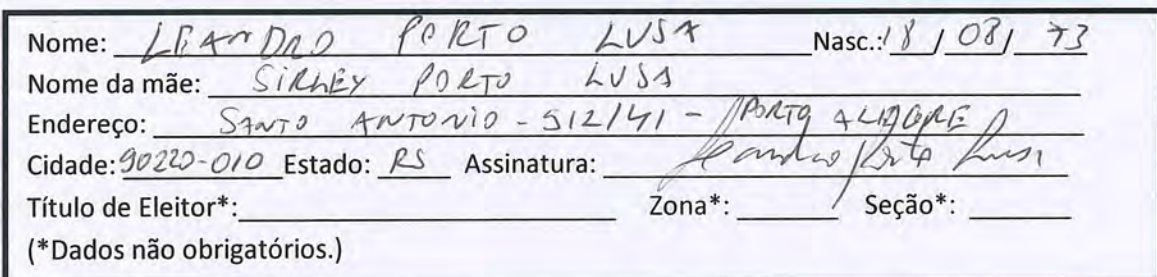 Nome: LEANDRO PORTO LUSA Nasc.: 18 / 08 / 73
Nome da mãe: SIRLEY PORTO LUSA
Endereço: SANTO ANTONIO - 512/41 - PORTO ALEGRE
Cidade: 90220-010 Estado: RS Assinatura: Leandro Porto Lusa
Título de Eleitor*: Zona*: Seção*:
(*Dados não obrigatórios.)